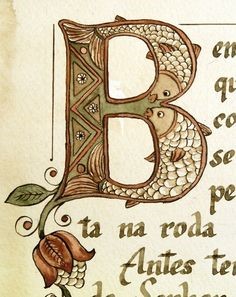 Bem
qu
co
se
pe
ta na roda
Antes te
do Senhor